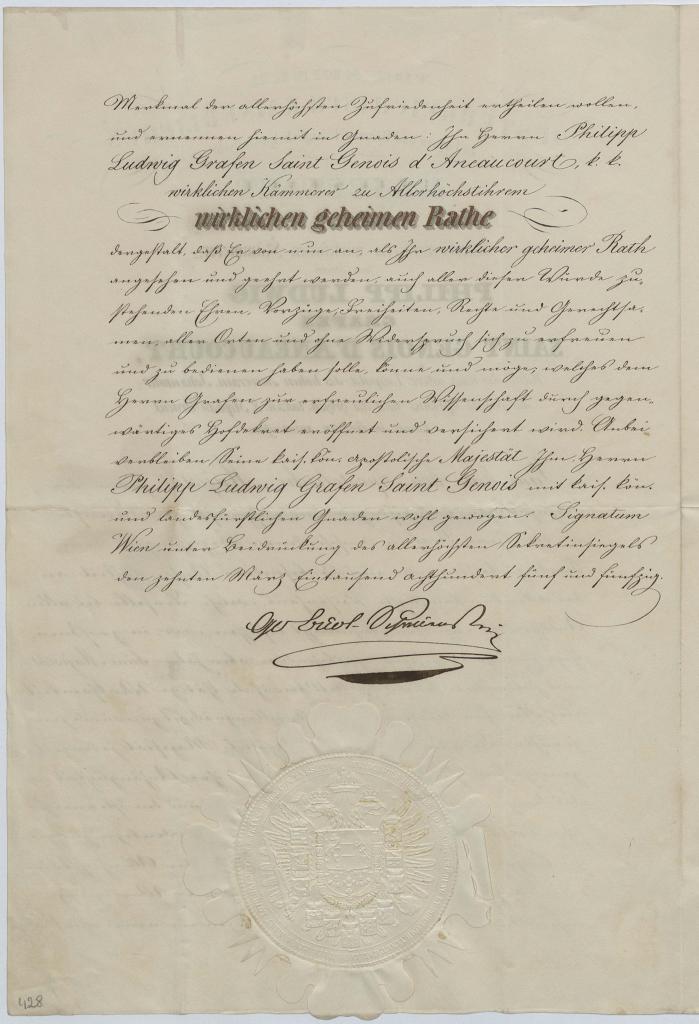 Merkmal der allerhöchsten Zufriedenheit ertheilen wollen,
und ernennen hiemit in Gnaden: Ihn Herrn Philipp
Ludwig Grafen Saint Genois d'Aneaucourt, k. k.
wirklichen Kämmerer zu Allerhöchstihrem
wirklichen geheimen Rathe
dergestalt, daß Er von nun an, als Ihr wirklicher geheimer Rath
angesehen und geehrt werden, auch aller dieser Würde zu-
stehenden Ehren, Vorzüge, Freiheiten, Rechte und Gerechtsa-
men, aller Orten und ohne Widerspruch sich zu erfreuen
und zu bedienen haben solle, könne und möge, welches dem
Herrn Grafen zur erfreulichen Wissenschaft durch gegen-
wärtiges Hofdekret eröffnet und versichert wird. Anbei
verbleiben Seine kais. kön. apostolische Majestät Ihm Herrn
Philipp Ludwig Grafen Saint Genois mit kais. kön.
und landesfürstlichen Gnaden wohl gewogen. Signatum
Wien unter Beidrückung des allerhöchsten Sekretinsiegels
den zehnten März Eintausend achthundert fünf und fünfzig.
428